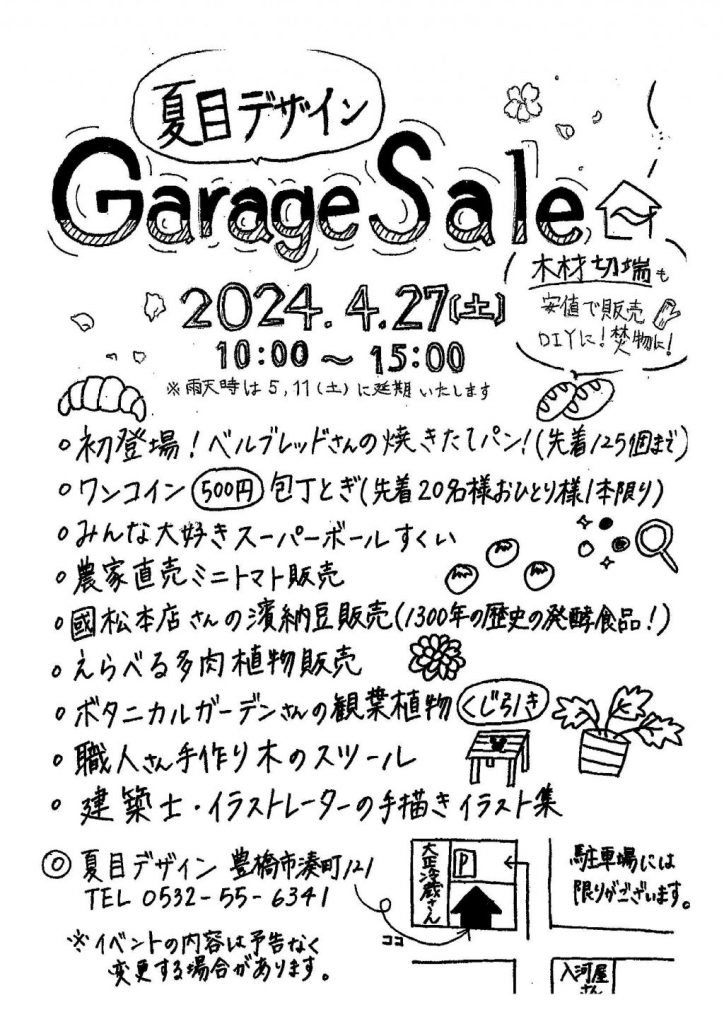 夏目デザイン
Garage Sale
木材切端も
安値で販売
DIYに!焚物に!
2024.4.27(土)
10:00～15:00
※雨天時は5,11(土)に延期いたします
○初登場!ベルブレッドさんの焼きたてパン!(先着125個まで)
○ワンコイン 500円 包丁とぎ(先着20名様おひとり様1本限り)
○みんな大好きスーパーボールすくい
○農家直売ミニトマト販売
○國松本店さんの濱納豆販売(1300年の歴史の発酵食品!)
○えらべる多肉植物販売
○ボタニカルガーデンさんの観葉植物くじ引き
○職人さん手作り木のスツール
○建築士・イラストレーターの手描きイラスト集
◎夏目デザイン 豊橋市湊町121
TEL 0532-55-6341
※イベントの内容は予告なく
変更する場合があります。
大正冷蔵さん
P
ココ
駐車場には
限りがございます。
入河屋
さん